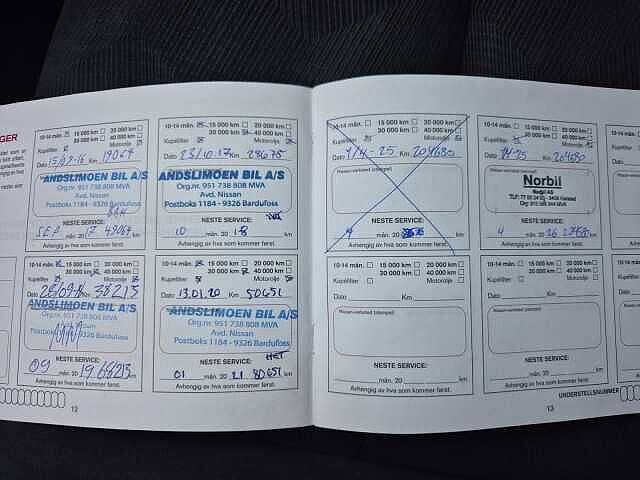 GER
10-14 mån. 15 000 km 20 000 km
30 000 km 40 000 km
Kupefilter Motorolje
Dato 15/09-16 Km 19064
ANDSLIMOEN BIL A/S
Org.nr. 951 738 808 MVA
Avd. Nissan
Postboks 1184 - 9326 Bardufoss
NESTE SERVICE:
SEP mån. 20 17 49064 km
Avhengig av hva som kommer først.
10-14 mån. 15 000 km 20 000 km
30 000 km 40 000 km
Kupefilter Motorolje
Dato 23/10.17 Km 28675
ANDSLIMOEN BIL A/S
Org.nr. 951 738 808 MVA
Avd. Nissan
Postboks 1184 - 9326 Bardufoss
NESTE SERVICE:
10 mån. 20 18 km
Avhengig av hva som kommer først.
10-14 mån. 15 000 km 20 000 km
30 000 km 40 000 km
Kupefilter Motorolje
Dato Km 38213
ANDSLIMOEN BIL A/S
Org.nr. 951 738 808 MVA
Avd. Nissan
Postboks 1184 - 9326 Bardufoss
NESTE SERVICE:
09 mån. 20 19 68213 km
Avhengig av hva som kommer først.
10-14 mån. 15 000 km 20 000 km
30 000 km 40 000 km
Kupefilter Motorolje
Dato 13.01.20 Km 50651
ANDSLIMOEN BIL A/S
Org.nr. 951 738 808 MVA
Avd. Nissan
Postboks 1184 - 9326 Bardufoss
NESTE SERVICE:
01 mån. 20 21 80651 km
Avhengig av hva som kommer først.
12
10-14 mån. 15 000 km 20 000 km
30 000 km 40 000 km
Kupefilter Motorolje
Dato 9/4-25 Km 204680
Nissan-verksted (stempel)
NESTE SERVICE:
4 mån. 20 km
Avhengig av hva som kommer først.
10-14 mån. 15 000 km 20 000 km
30 000 km 40 000 km
Kupefilter Motorolje
Dato Km 204680
Nissan-verksted (stempel)
Norbil
Norbil AS
NESTE SERVICE:
4 mån. 20 26 km
Avhengig av hva som kommer først.
10-14 mån. 15 000 km 20 000 km
30 000 km 40 000 km
Kupefilter Motorolje
Dato Km
Nissan-verksted (stempel)
NESTE SERVICE:
mån. 20 km
Avhengig av hva som kommer først.
10-14 mån. 15 000 km 20 000 km
30 000 km 40 000 km
Kupefilter Motorolje
Dato Km
Nissan-verksted (stempel)
NESTE SERVICE:
mån. 20 km
Avhengig av hva som kommer først.
13
UNDERSTELLSNUMMER